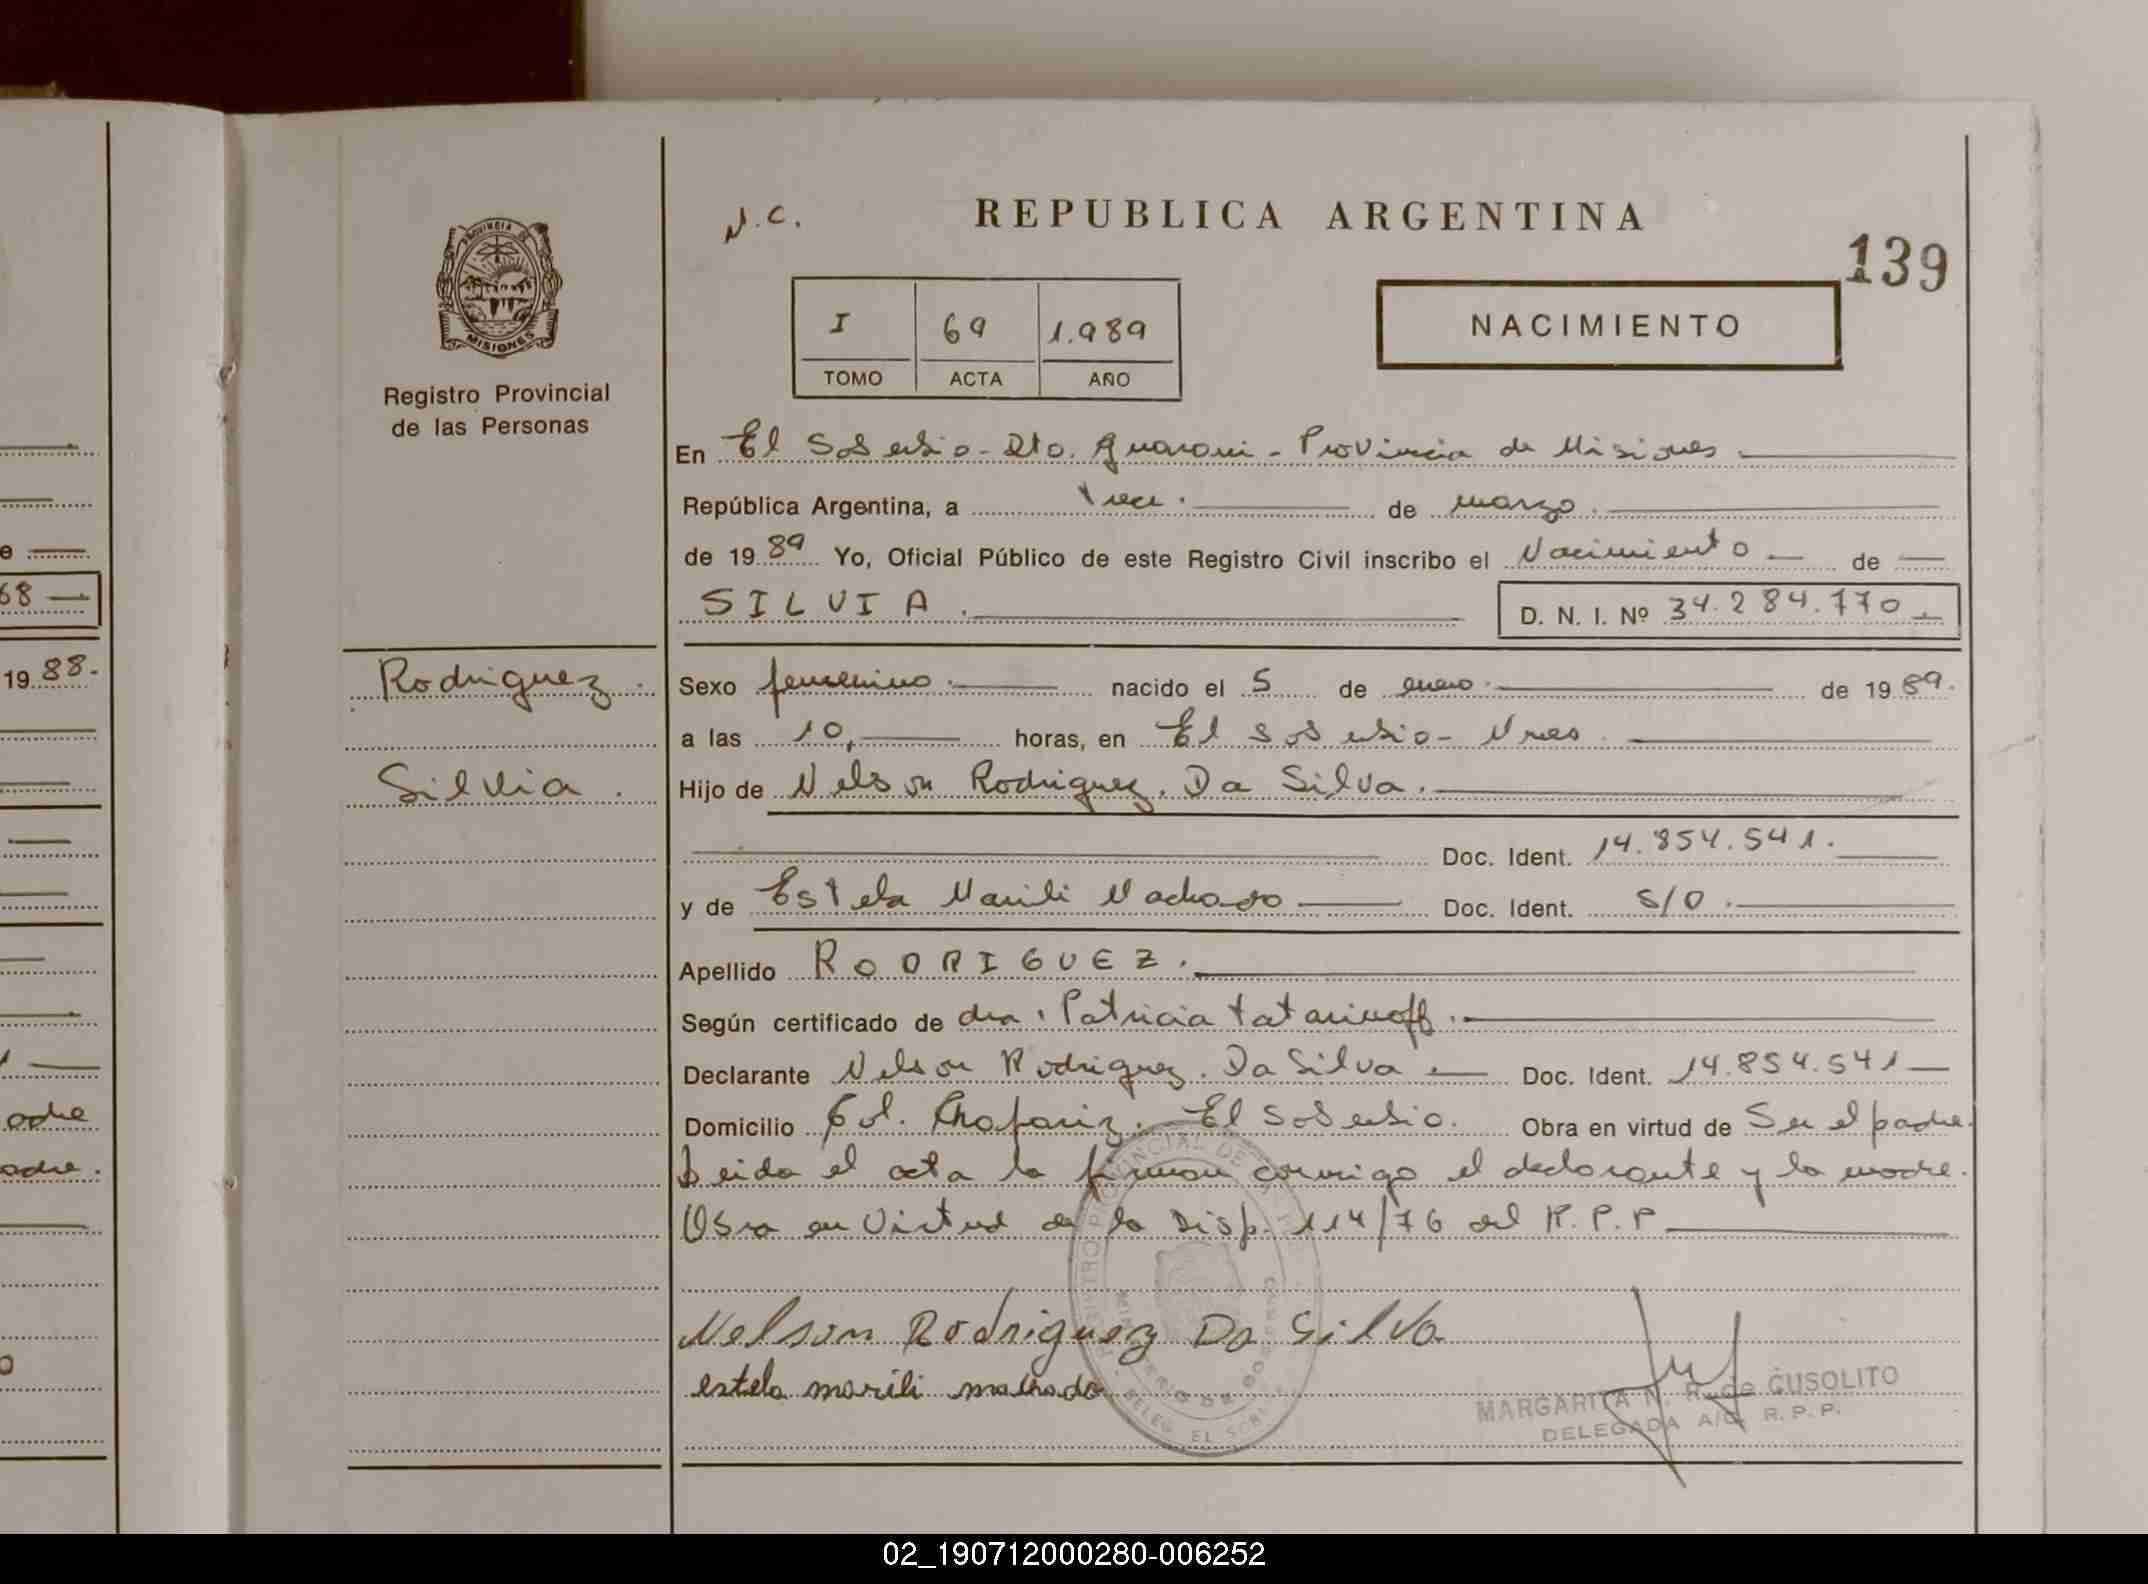 REPUBLICA ARGENTINA
N.C.
139
PROVINCIA DE
MISIONES
Registro Provincial
de las Personas
I 69 1.989
TOMO ACTA AÑO
NACIMIENTO
En El Soberbio - Dto. Guarani - Provincia de Misiones
República Argentina, a trece. de marzo.
de 1989 Yo, Oficial Público de este Registro Civil inscribo el Nacimiento de
SILVIA. D. N. I. Nº 34.284.770.
68
1988.
Rodriguez.
Silvia.
Sexo femenino. nacido el 5 de enero. de 1989.
a las 10, horas, en El Soberbio - Mnes.
Hijo de Nelson Rodriguez. Da Silva.
Doc. Ident. 14.854.541.
y de Estela Marili Machado Doc. Ident. S/D.
Apellido RODRIGUEZ.
Según certificado de dra. Patricia Tatarinoff.
Declarante Nelson Rodriguez. Da Silva Doc. Ident. 14.854.541
Domicilio Col. El Soberbio. Obra en virtud de Ser el padre.
Leida el acta la firman conmigo el declarante y la madre.
Obra en Virtud de la Disp. 114/76 del R.P.P
Nelson Rodriguez Da Silva
estela marili machado
MARGARITA N. R. de CUSOLITO
DELEGADA A/C. R.P.P.
02_190712000280-006252